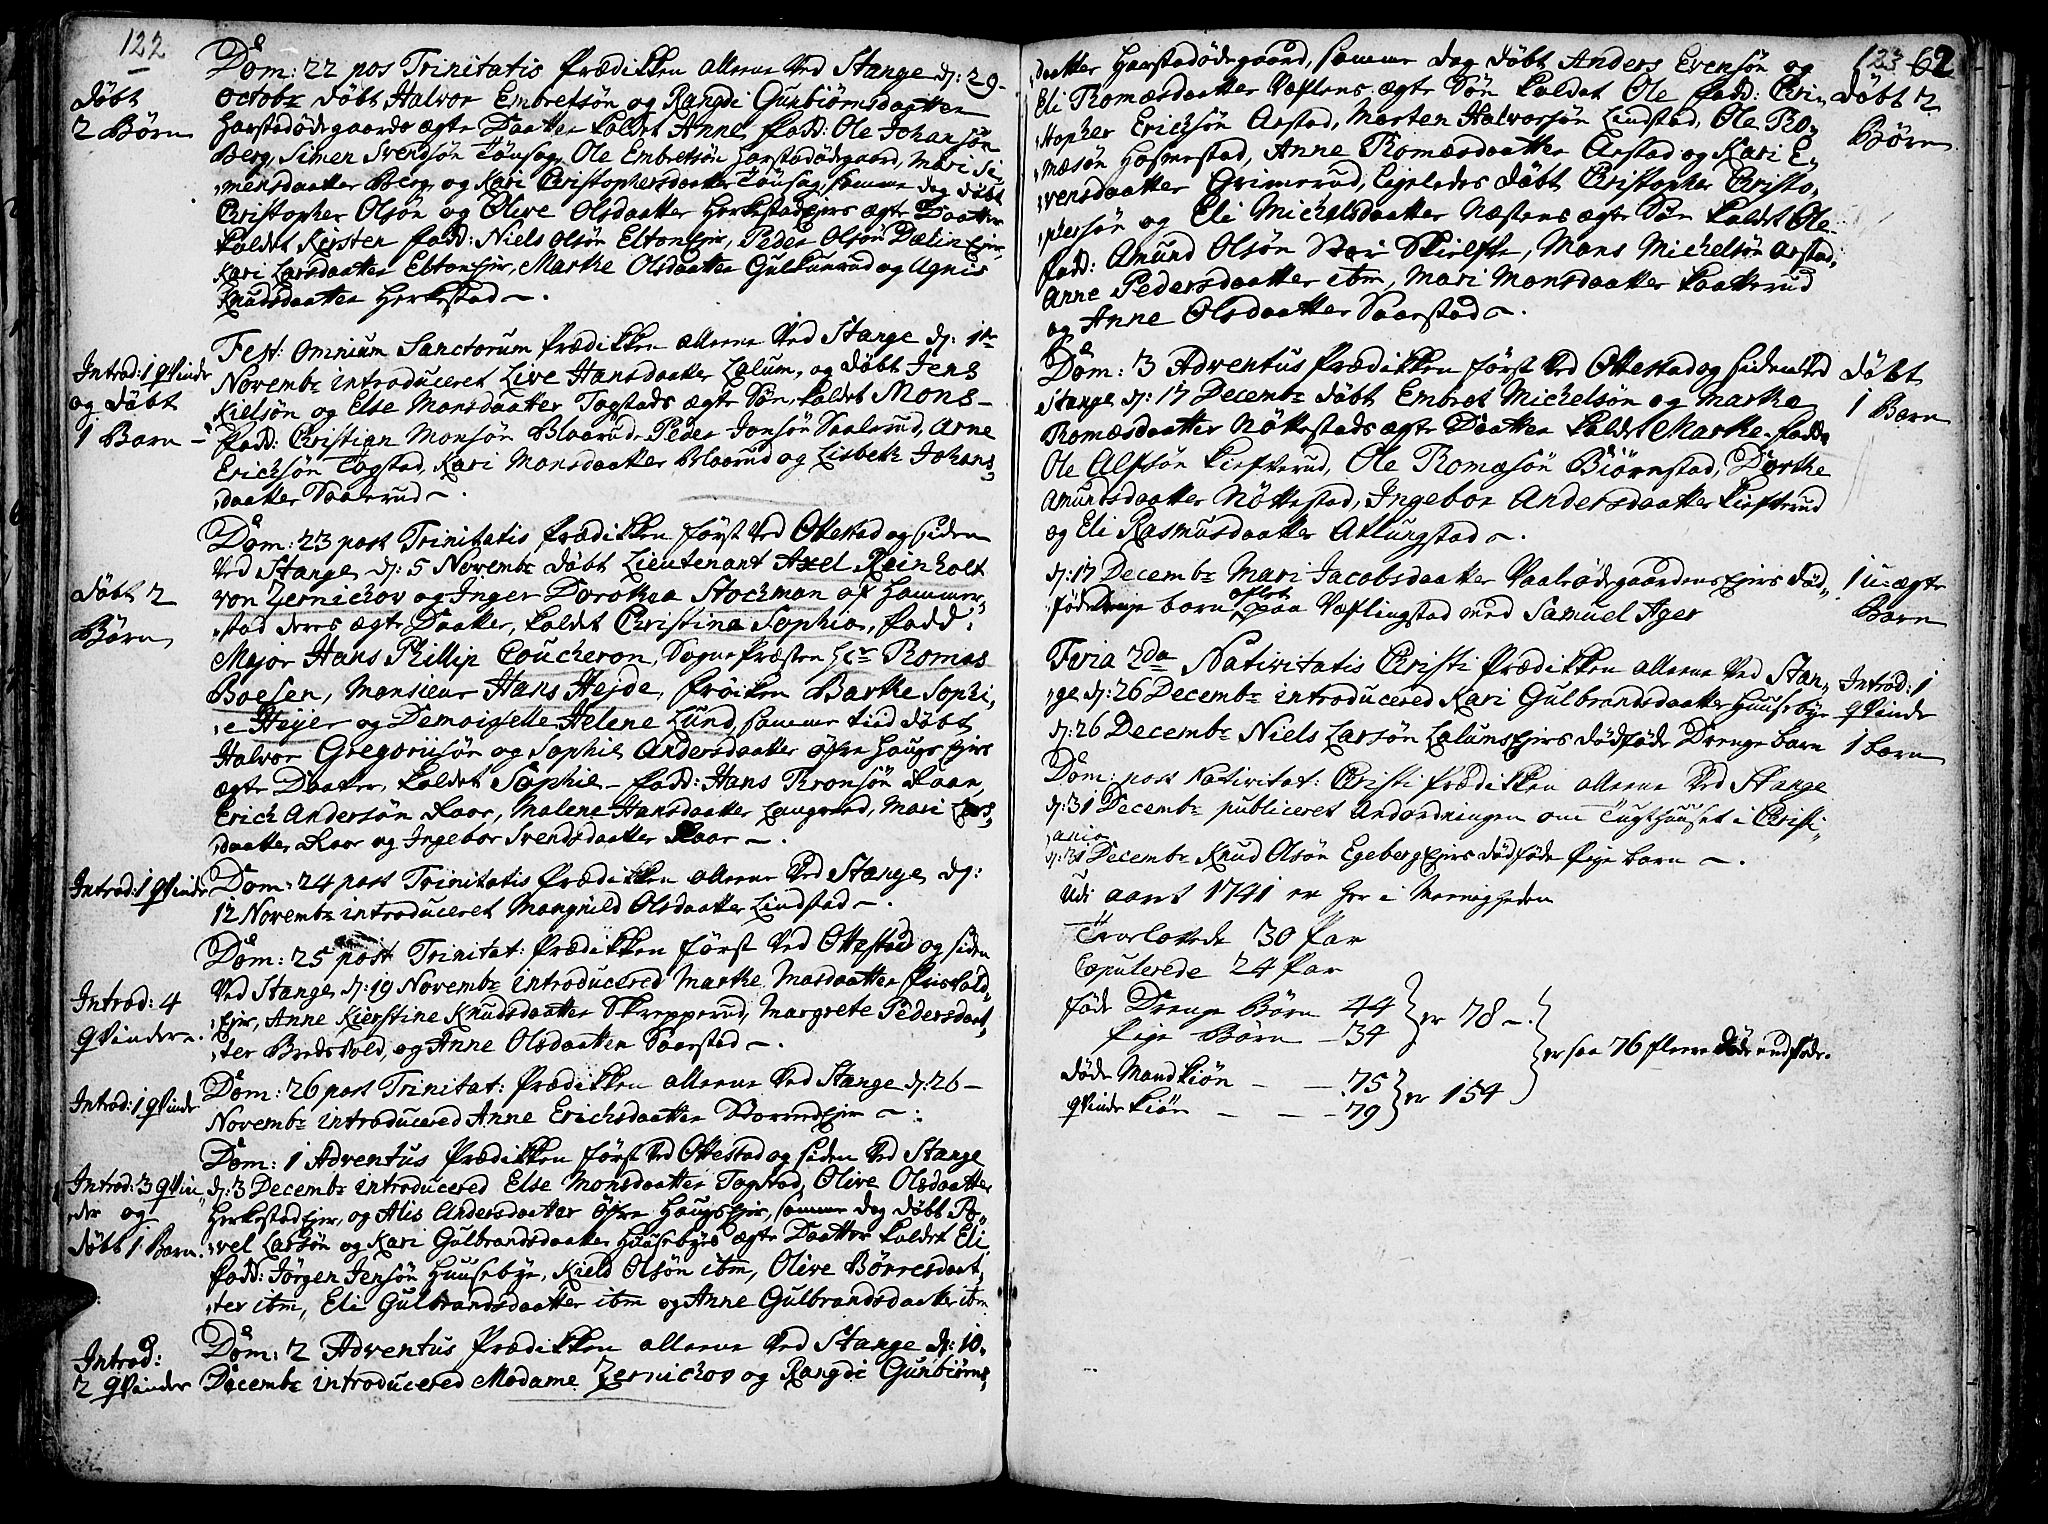 122
Dom: 22 pos Trinitatis Prædikken allene Ved Stange d: 29
døbt
2 Børn
octobr døbt Halvor Embretsøn og Rangdi Gunbiørnsdaatter
Harstadødegaards ægte Daatter kaldet Anne, fadd: Ole Johansøn
Berg, Simen Svendsøn Tønsag, Ole Embretsøn Harstadødegaard, Mari Si,
mensdaatter Berg, og Kari Christophersdaatter Tønsag, samme dag døbt
Christopher Olsøn og Olive Olsdaatter Herkestadejes ægte Daatter
kaldet Kirsten fadd: Niels Olsøn Eltonejer, Peder Olsøn Dælinejer,
Kari Larsdaatter Eltonejer, Marthe Olsdaatter Gulkunrud og Agnis
Knudsdaatter Herkestad.
Fest: Omnium Sanctorum Prædikken allene Ved Stange d: 1te
Introd: 1 qvinde
og døbt
1 Barn
Novembr introduceret Live Hansdaatter Lalum, og døbt Jens
Kielsøn og Else Monsdaatter Togstads ægte Søn, kaldet Mons
fadd: Christian Monsøn Blaarud, Peder Jonsøn Saalerud, Arne
Ericksøn Togstad, Kari Monsdaatter Blaarud og Lisbeth Johans,
daatter Saalerud.
Dom: 23 post Trinitatis Prædikken først Ved Ottestad og siden
Ved Stange, d: 5 Novembr døbt Lieutenant Axel Reinholt
døbt 2
Børn
von Zernichov og Inger Dorothea Stochman af Hammer,
stad deres ægte Daatter, kaldet Christina Sophia, fadd:
Major Hans Phillip Coucheron, Sogne Præsten Hr Romas
Boesen, Monsieur Hans Hejde, frøiken Barthe Sophi,
e Heyer og Demoiselle Helene Lund, samme tiid døbt
Halvor Gregoriisøn og Sophie Andersdaatter øfre Haugs Ejers
ægte Daatter, kaldet Sophie - fadd: Hans Tronsøn Raar,
Erich Andersøn Raar, Malene Hansdaatter Langrud, Mari Lars,
daatter Raar og Ingebor Svendsdaatter Raar.
Introd: 1 qvinde
Dom: 24 post Trinitatis Prædikken allene Ved Stange, d:
12 Novembr introduceret Mangnild Olsdaatter Lindstad.
Dom: 25 post Trinitat: Prædikken først Ved Ottestad og siden
Introd: 4
qvinder.
Ved Stange, d: 19 Novembr introducered Marthe Masdaatter friskold,
Ejer, Anne Kierstine Knudsdaatter Skrepperud, Margrete Pedersdaat,
ter Bredvold, og Anne Olsdaatter Saarstad.
Introd: 1 qvinde
Dom: 26 post Trinitat: Prædikken allene Ved Stange d: 26
Novembr introducered Anne Erichsdaatter Storrud Ejer
Dom: 1 Adventus Prædikken først Ved Ottestad og siden Ved Stange
Introd: 3 qvin,
der og
døbt 1 Barn.
d: 3 Decembr introducered Else Monsdaatter Togstad, Olive Olsdaatter
Herkestad Ejer, og Alis Andersdaatter øfre Haugs Ejer, samme dag døbt Po,
vel Larsøn og Kari Gulbrandsdaatter Huusebyes ægte Daatter kaldet Eli
fadd: Jørgen Jensøn Huusebye, Kield Olsøn ibm, Olive Børresdaat,
ter ibm, Eli Gulbrandsdaatter ibm og Anne Gulbrandsdaatter ibm
Dom: 2 Adventus Prædikken allene Ved Stange d: 10
Introd:
2 qvinder
Decembr introducered Madame Zernichov og Rangdi Gunbiørns,
123 62
daatter Harstadødegaard, samme dag døbt Anders Evensøn og
Eli Romæsdaatter Væstens ægte Søn kaldet Ole fadd: Chri,
døbt 2
Børn
stopher Ericksøn Arstad, Morten Halvorsøn Lindstad, Ole Ro,
mæsøn Hosmestad, Anne Romæsdaatter Arstad og Kari E,
vensdaatter Grimerud, ligeledes døbt Christopher Christo,
phersøn og Eli Michelsdaatter Næstens ægte Søn kaldet Ole
fadd: Amund Olsøn Stor Skielfte, Mons Michelsøn Arstad,
Anne Pedersdaatter ibm, Mari Monsdaatter Kaatterud
og Anne Olsdaatter Saarstad.
Dom: 3 Adventus Prædikken først Ved Ottestad og siden Ved
døbt
1 Barn
Stange d: 17 Decembr døbt Embret Michelsøn og Marthe
Romæsdaatter Nøttestads ægte Daatter kaldet Marthe, fadd:
Ole Alfsøn Kiefverud, Ole Romæsøn Biørnstad, Dorthe
Amundsdaatter Nøttestad, Ingebor Andersdaatter Kiefverud
og Eli Rasmusdaatter Atlungstad.
d: 17 Decembr Mari Jacobsdaatter Vaalsødegaardens Ejers død,
1 u-ægte
Barn
føde Drenge barn aflet paa Væflingstad med Samuel Ager
Feria 2da Nativitatis Christi Prædikken allene Ved Stan,
Introd: 1
qvinde
ge d: 26 Decembr introducered Kari Gulbrandsdaatter Huusebye
d: 26 Decembr Niels Larsøn Lalums Ejers dødføde Drenge barn
1 barn
Dom: post Nativitat: Christi Prædikken allene Ved Stange
d: 31 Decembr publiceret Andordningen om Tugthuuset i Christi,
ania
d: 31 Decembr Knud Olsøn Egeberg Ejers dødføde Pige barn
Udi aaret 1741 er her i Menigheden
Troelovede 30 Par
Copulerede 24 Par
føde Drenge Børn 44
Pige Børn - 34
er 78
døde Mandkiøn - - 75
qvinde kiøn - - - 79
er 154
er saa 76 fleere døde end føde.